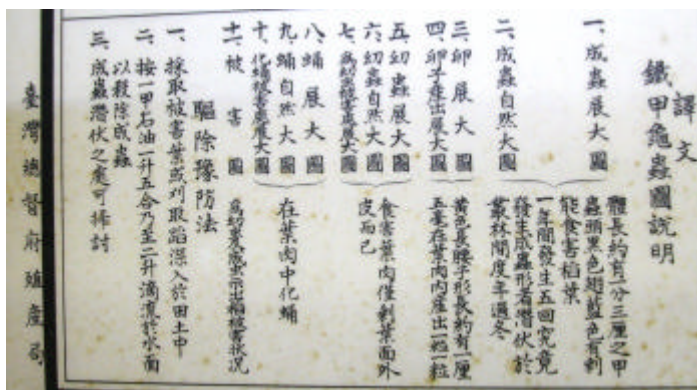 譯文
鐵甲龜蟲圖說明
一、成蟲展大圖
二、成蟲自然大圖
體長約有一分三厘之甲
蟲頭黑色翅藍色有刺
能食害稻葉
一年間發生五回究竟
發生成蟲形者潛伏於
叢林間度年過冬
三、卵展大圖
四、卵子產出展大圖
黃色長腰子形長約有一厘
五毫在葉肉內產出一粒一粒
五、幼蟲展大圖
六、幼蟲自然大圖
七、為幼蟲被害處展大圖
食害葉肉僅剩葉面外
皮而已
八、蛹展大圖
九、蛹自然大圖
十、化蛹被害處展大圖
在葉肉中化蛹
十一、被害圖
驅除豫防法
一、採取被害葉或刈取蹈深入於田土中
二、按一甲石油一升五合乃至二升滴瀉於水面
以殺除成蟲
三、成蟲潛伏之處可掃討
臺灣總督府殖產局